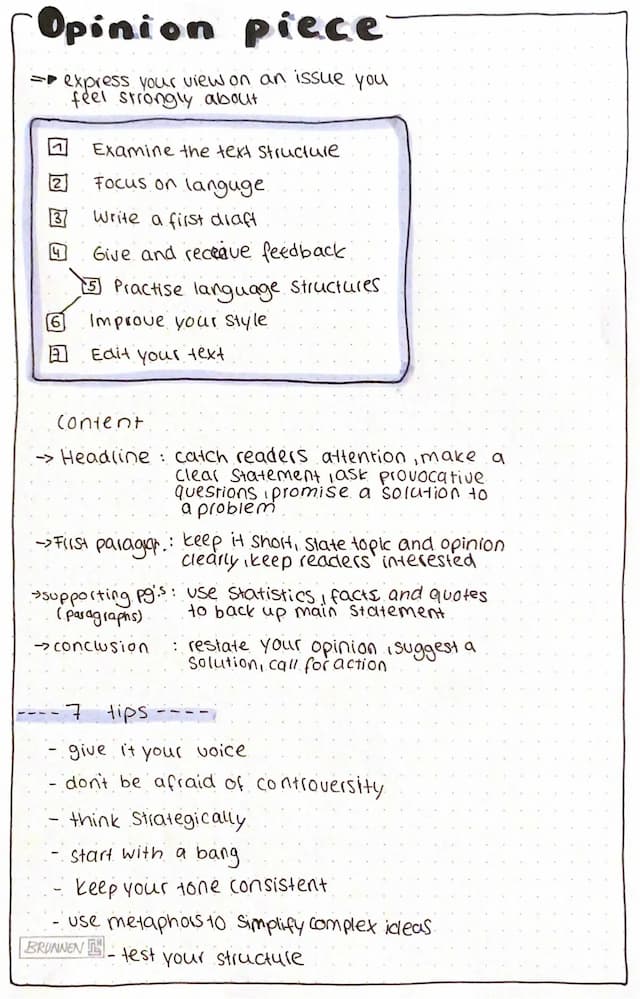 Opinion piece
=> express your view on an issue you
feel strongly about
1 Examine the text structure
2 Focus on languge
3 Write a first draft
4 Give and receive feedback
5 Practise language structures
6 Improve your style
7 Edit your text
content
-> Headline : catch readers attention, make a
clear statement, ask provocative
questions, promise a solution to
a problem
-> First paragr. : keep it short, state topic and opinion
clearly, keep readers interested
-> supporting pg's : use statistics, facts and quotes
(paragraphs) to back up main statement
-> conclusion : restate your opinion, suggest a
solution, call for action
---- 7 tips ----
- give it your voice
- don't be afraid of controversity
- think strategically
- start with a bang
- keep your tone consistent
- use metaphors to simplify complex ideas
- test your structure
BRUNNEN